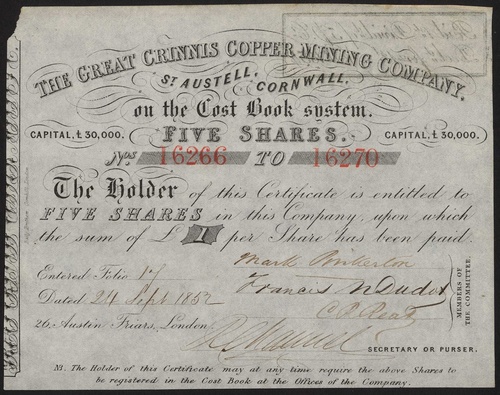 THE GREAT CRINNIS COPPER MINING COMPANY.
ST AUSTELL, CORNWALL.
on the Cost Book system.
CAPITAL, £30,000. FIVE SHARES. CAPITAL, £30,000.
Nos 16266 TO 16270
The Holder of this Certificate is entitled to
FIVE SHARES in this Company, upon which
the sum of £1 per Share has been paid.
Entered Folio 17
Mark Pinkerton
Dated 24 Sept 1852
Francis
MEMBERS OF THE COMMITTEE.
26, Austin Friars, London
SECRETARY OR PURSER.
NB. The Holder of this Certificate may at any time require the above Shares to
be registered in the Cost Book at the Offices of the Company.